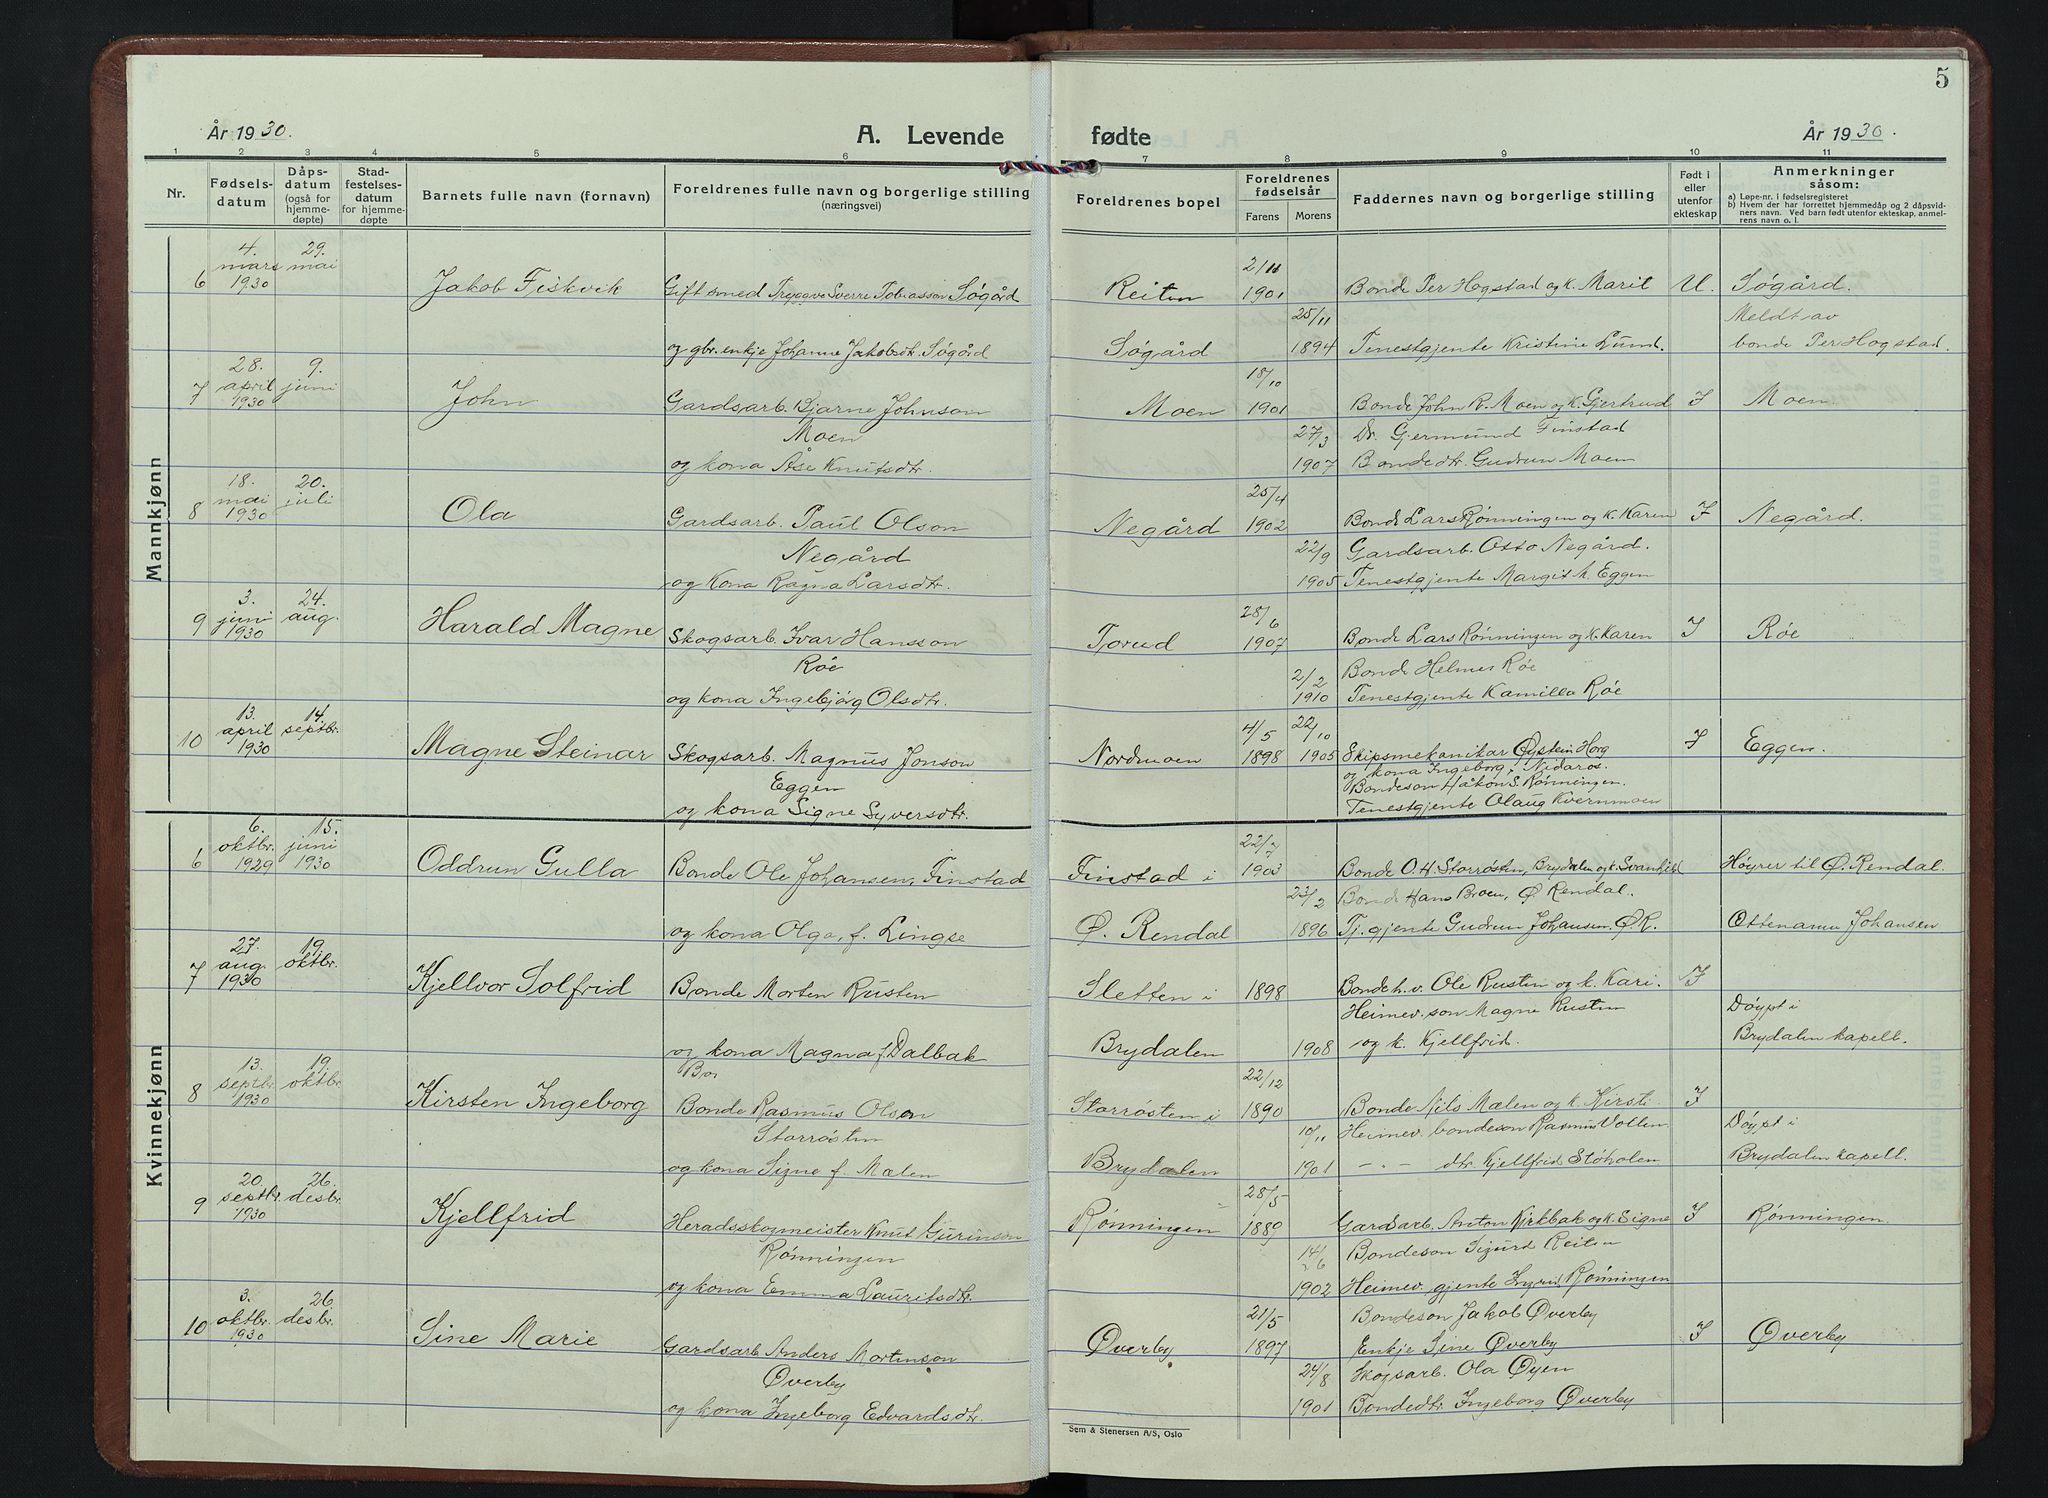 5
År 1930.
A. Levende
fødte
År 1930.
1 2 3 4 5 6 7 8 9 10 11
Nr.
Fødsels-
datum
Dåps-
datum
(også for
hjemme-
døpte)
Stad-
festelses-
datum
for hjemme-
døpte
Barnets fulle navn (fornavn)
Foreldrenes fulle navn og borgerlige stilling
(næringsvei)
Foreldrenes bopel
Foreldrenes
fødselsår
Farens Morens
Faddernes navn og borgerlige stilling
Født i
eller
utenfor
ekteskap
Anmerkninger
såsom:
a) Løpe-nr. i fødselsregisteret
b) Hvem der har forrettet hjemmedåp og 2 dåpsvid-
ners navn. Ved barn født utenfor ekteskap, anmel-
rens navn o. l.
Mannkjønn
6
4.
mars
1930
29.
mai
Jakob Fiskvik
Gift smed Tryggve Sverre Tobiasson Søgård
og gbr. enkje Johanne Jakobsdtr. Søgård
Reiten
Søgård
2/11
1901
25/11
1894
Bonde Per Hogstad og k. Marit
Tenestgjente Kristine Lund.
U.
Søgård.
Meldt av
bonde Per Hogstad.
7
28.
april
1930
9.
juni
John
Gardsarb. Bjarne Johnson
Moen
og kona Åse Knutsdtr.
Moen
18/10
1901
27/3
1907
Bonde John R. Moen og k. Gjertrud
Dr. Gjermund Finstad
Bondedtr. Gudrun Moen
I
Moen.
8
18.
mai
1930
20.
juli
Ola
Gardsarb. Paul Olson
Negård
og kona Ragna Larsdtr.
Negård
25/4
1902
22/9
1905
Bonde Lars Rønningen og k. Karen
Gardsarb. Otto Negård.
Tenestgjente Margit h. Eggen
I
Negård.
9
3.
juni
1930
24.
aug.
Harald Magne
Skogsarb. Ivar Hansson
Røe
og kona Ingebjörg Olsdtr.
Torud
28/6
1907
2/2
1910
Bonde Lars Rønningen og k. Karen
Bonde Helmer Røe
Tenestgjente Kamilla Røe
I
Røe
10
13.
april
1930
14.
septbr.
Magne Steinar
Skogsarb. Magnus Jonson
Eggen
og kona Signe Syversdtr.
Nordmoen
4/5
1898
22/10
1905
Skipsmekanikar Øystein Horg
og kona Ingeborg, Nidaros.
Bondeson Håkon S. Rønningen.
Tenestgjente Olaug Kvernmoen
I
Eggen.
Kvinnekjønn
6
6.
oktbr.
1929
15.
juni
1930
Oddrun Gulla
Bonde Ole Johansen, Finstad
og kona Olga, f. Lingse
Finstad i
Ø. Rendal
22/7
1903
23/2
1896
Bonde O. H. Storrøsten, Brydalen og k. Svanhild
Bonde Hans Broen, Ø. Rendal.
Tj. gjente Gudrun Johansen, Ø. R.
Høyrer til Ø. Rendal.
Johansen
7
27.
aug.
1930
19.
oktbr.
Kjellvor Solfrid
Bonde Morten Rusten
og kona Magna f. Dalbak
Sletten i
Brydalen
1898
1908
Bonde h. v. Ole Rusten og k. Kari.
Heimev. son Magne Rusten
og k. Kjellfrid.
I
Døypt i
Brydalen kapell.
8
13.
septbr.
1930
19.
oktbr.
Kirsten Ingeborg
Bo
Bonde Rasmus Olson
Storrøsten
og kona Signe f. Mælen
Storrøsten i
Brydalen
22/12
1890
10/11
1901
Bonde Nils Mælen og k. Kirsti.
Heimev. bondeson Rasmus Vollen
-"- dtr. Kjellfrid Støholen
I
Døypt i
Brydalen kapell.
9
20.
septbr.
1930
26.
desbr.
Kjellfrid
Heradsskogmeister Knut Gurinson
Rønningen
og kona Emma Lauritsdtr.
Rønningen
28/5
1889
14/6
1902
Gardsarb. Anton Kirkbak og k. Signe
Bondeson Sigurd Reiten
Heimev. gjente Ingrid Rønningen
I
Rønningen.
10
3.
oktbr.
1930
26.
desbr.
Sine Marie
Gardsarb Anders Mortinson
Øverby
og kona Ingeborg Edvardsdtr.
Øverby
21/5
1897
24/8
1901
Bondeson Jakob Øverby
Enkje Sine Øverby
Skogsarb. Ola Øyen
Bondedtr Ingeborg Øverby
I
Øverby
Sem & Stenersen A/S, Oslo